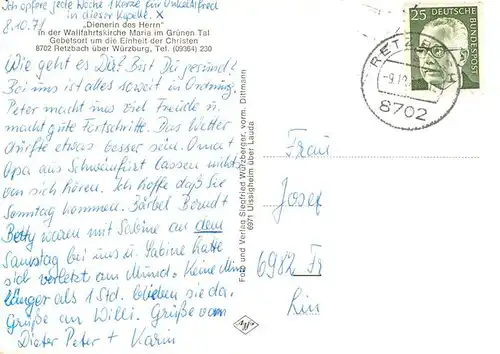 Ich opfere jede Woche 1 Kerze für Onkel Alfred
in dieser Kapelle. X
8.10.71
"Dienerin des Herrn"
in der Wallfahrtskirche Maria im Grünen Tal
Gebetsort um die Einheit der Christen
8702 Retzbach über Würzburg, Tel. (09364) 230
Wie geht es Dir? Bist Du gesund?
Bei uns ist alles soweit in Ordnung.
Peter macht uns viel Freude u.
macht gute Fortschritte. Das Wetter
dürfte etwas besser sein. Oma +
Opa aus Schweinfurt lassen nichts
von sich hören. Ich hoffe daß Sie
Sonntag kommen. Bärbel Bernd +
Betty waren mit Sabine an dem
Samstag bei uns u. Sabine hatte
sich verletzt am Mund. Keine
länger als 1 Std. blieben sie da.
Grüße an Willi. Grüße von
Dieter Peter + Karin
Foto und Verlag Siegfried Würzberger, vorm. Dittmann
6971 Uissigheim über Lauda
25
DEUTSCHE
BUNDESPOST
8702
Frau
Josef
6982 Fr
Lin
Agfa